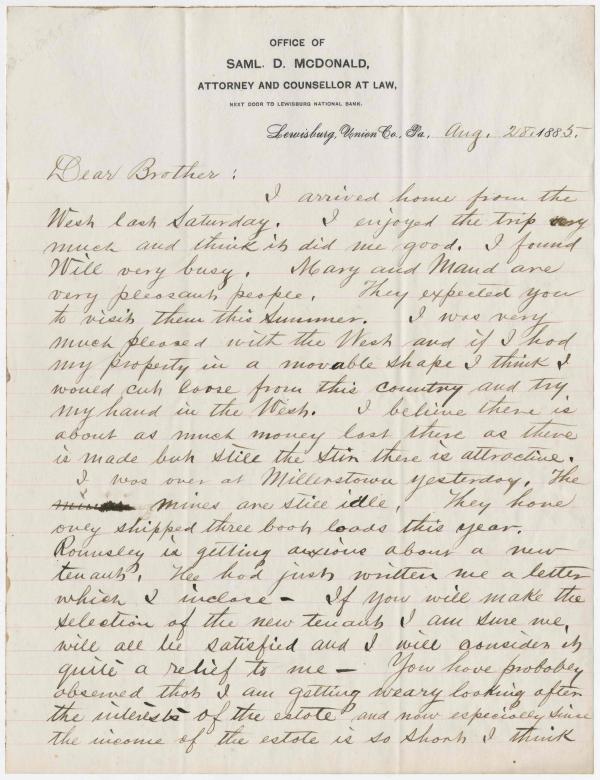 OFFICE OF
SAML. D. McDONALD,
ATTORNEY AND COUNSELLOR AT LAW,
NEXT DOOR TO LEWISBURG NATIONAL BANK.
Lewisburg, Union Co., Pa., Aug. 28. 1885.
Dear Brother :
I arrived home from the
West last Saturday. I enjoyed the trip very
much and think it did me good. I found
Will very busy. Mary and Maud are
very pleasant people. They expected you
to visit them this summer. I was very
much pleased with the West and if I had
my property in a movable shape I think I
would cut loose from this country and try
my hand in the West. I believe there is
about as much money lost there as there
is made but still the stir there is attractive.
I was over at Millerstown yesterday. The
mines are still idle. They have
only shipped three boat loads this year.
is getting anxious about a new
tenant. He had just written me a letter
which I inclose - If you will make the
selection of the new tenant I am sure we
will all be satisfied and I will consider it
quite a relief to me - You have probably
observed that I am getting weary looking after
the interests of the estate and now especially since
the income of the estate is so short I think